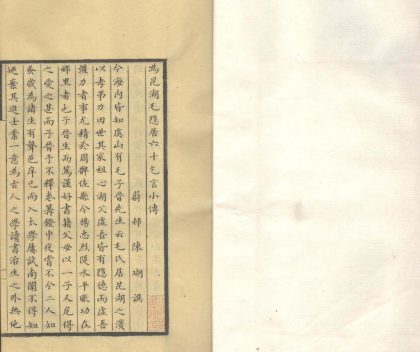 為昆湖毛隱居六十乞言小傳
蔚邨陳瑚譔
今海內皆知虞山有毛子晉先生云毛氏居昆湖之濱
以孝弟力田世其家祖心湖父虛吾皆有隱德而虛吾
彊力耆事尤精於
縣令楊忠烈隄水平賑功在
鄉里者也子晉生而篤謹好書籍父母以一子又危得
之愛之甚而子晉手不釋卷篝燈中夜嘗不令二人知
蚤歲為諸生有聲邑庠已而入太學屢試南闈不得知
遂棄其進士業一意為古人之學讀書治生之外無他